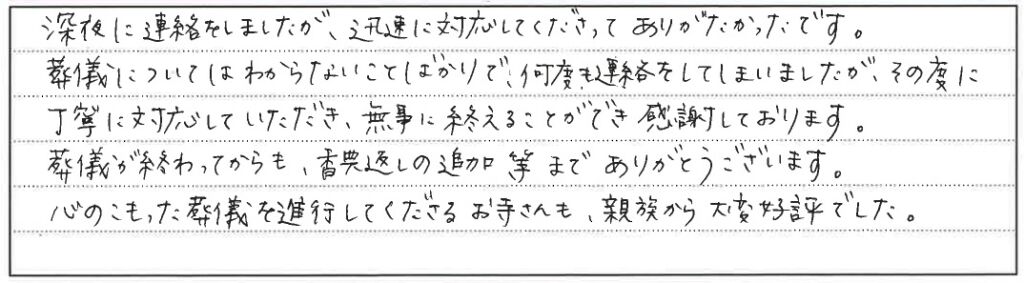 深夜に連絡をしましたが、迅速に対応してくださって ありがたかったです。
葬儀についてはわからないことばかりで、何度も連絡をしてしまいましたが、その度に
丁寧に対応していただき、無事に終えることができ 感謝しております。
葬儀が終わってからも、香典返しの追加 等 まで ありがとうございます。
心のこもった葬儀を進行してくださるお寺さんも、親族から 大変好評でした。